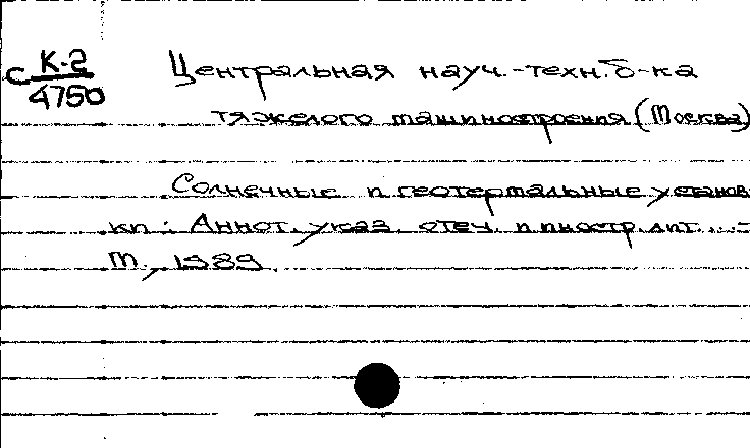 с К-2
4750
Центральная науч.-техн. б-ка
тяжелого машиностроения (Москва)
Солнечные и геотермальные установ
ки : Аннот. указ. отеч. и иностр. лит. ... -
М., 1989.